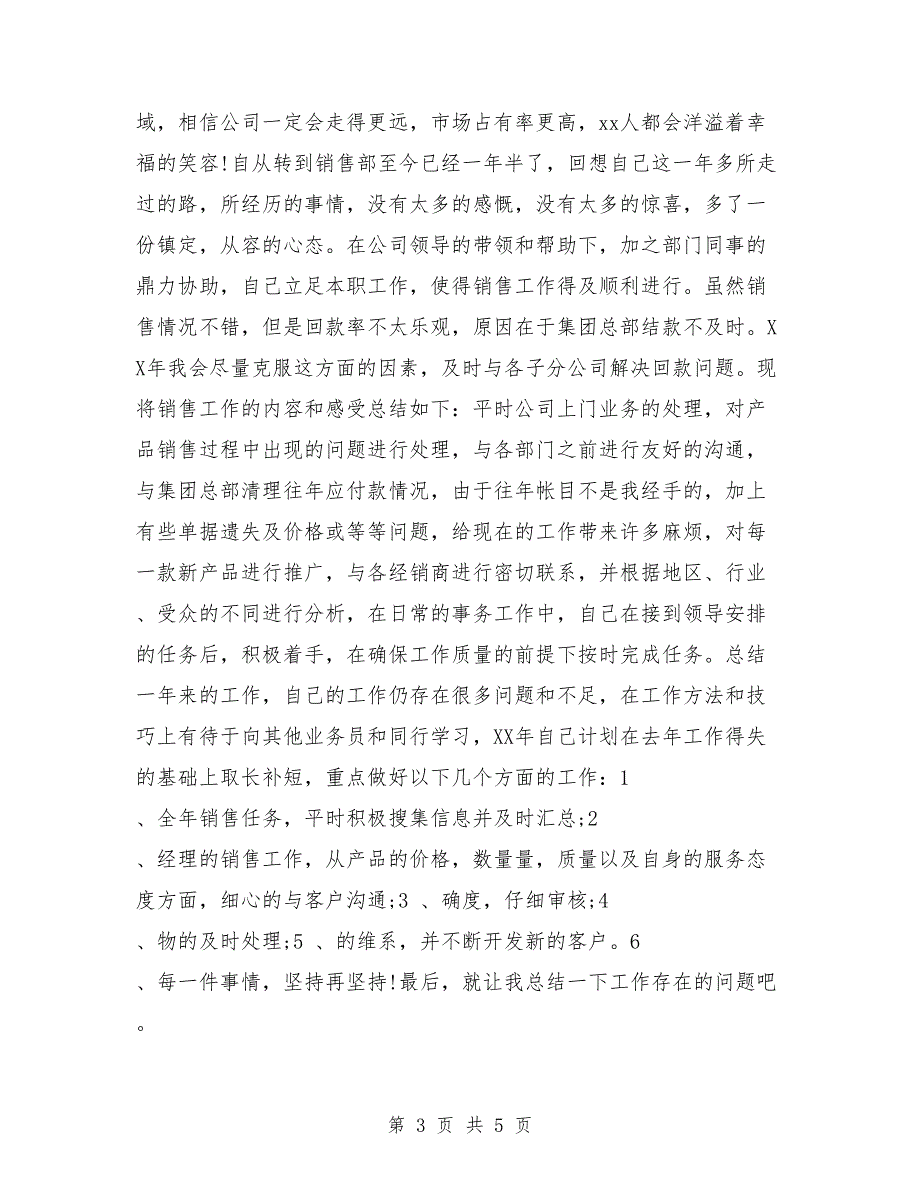 域，相信公司一定会走得更远，市场占有率更高，xx人都会洋溢着幸
福的笑容!自从转到销售部至今已经一年半了，回想自己这一年多所走
过的路，所经历的事情，没有太多的感慨，没有太多的惊喜，多了一
份镇定，从容的心态。在公司领导的带领和帮助下，加之部门同事的
鼎力协助，自己立足本职工作，使得销售工作得及顺利进行。虽然销
售情况不错，但是回款率不太乐观，原因在于集团总部结款不及时。X
X年我会尽量克服这方面的因素，及时与各子分公司解决回款问题。现
将销售工作的内容和感受总结如下：平时公司上门业务的处理，对产
品销售过程中出现的问题进行处理，与各部门之前进行友好的沟通，
与集团总部清理往年应付款情况，由于往年帐目不是我经手的，加上
有些单据遗失及价格或等等问题，给现在的工作带来许多麻烦，对每
一款新产品进行推广，与各经销商进行密切联系，并根据地区、行业
、受众的不同进行分析，在日常的事务工作中，自己在接到领导安排
的任务后，积极着手，在确保工作质量的前提下按时完成任务。总结
一年来的工作，自己的工作仍存在很多问题和不足，在工作方法和技
巧上有待于向其他业务员和同行学习，XX年自己计划在去年工作得失
的基础上取长补短，重点做好以下几个方面的工作：1
、全年销售任务，平时积极搜集信息并及时汇总;2
、经理的销售工作，从产品的价格，数量量，质量以及自身的服务态
度方面，细心的与客户沟通;3 、确度，仔细审核;4
、物的及时处理;5 、的维系，并不断开发新的客户。6
、每一件事情，坚持再坚持!最后，就让我总结一下工作存在的问题吧
。
第 3 页 共 5 页